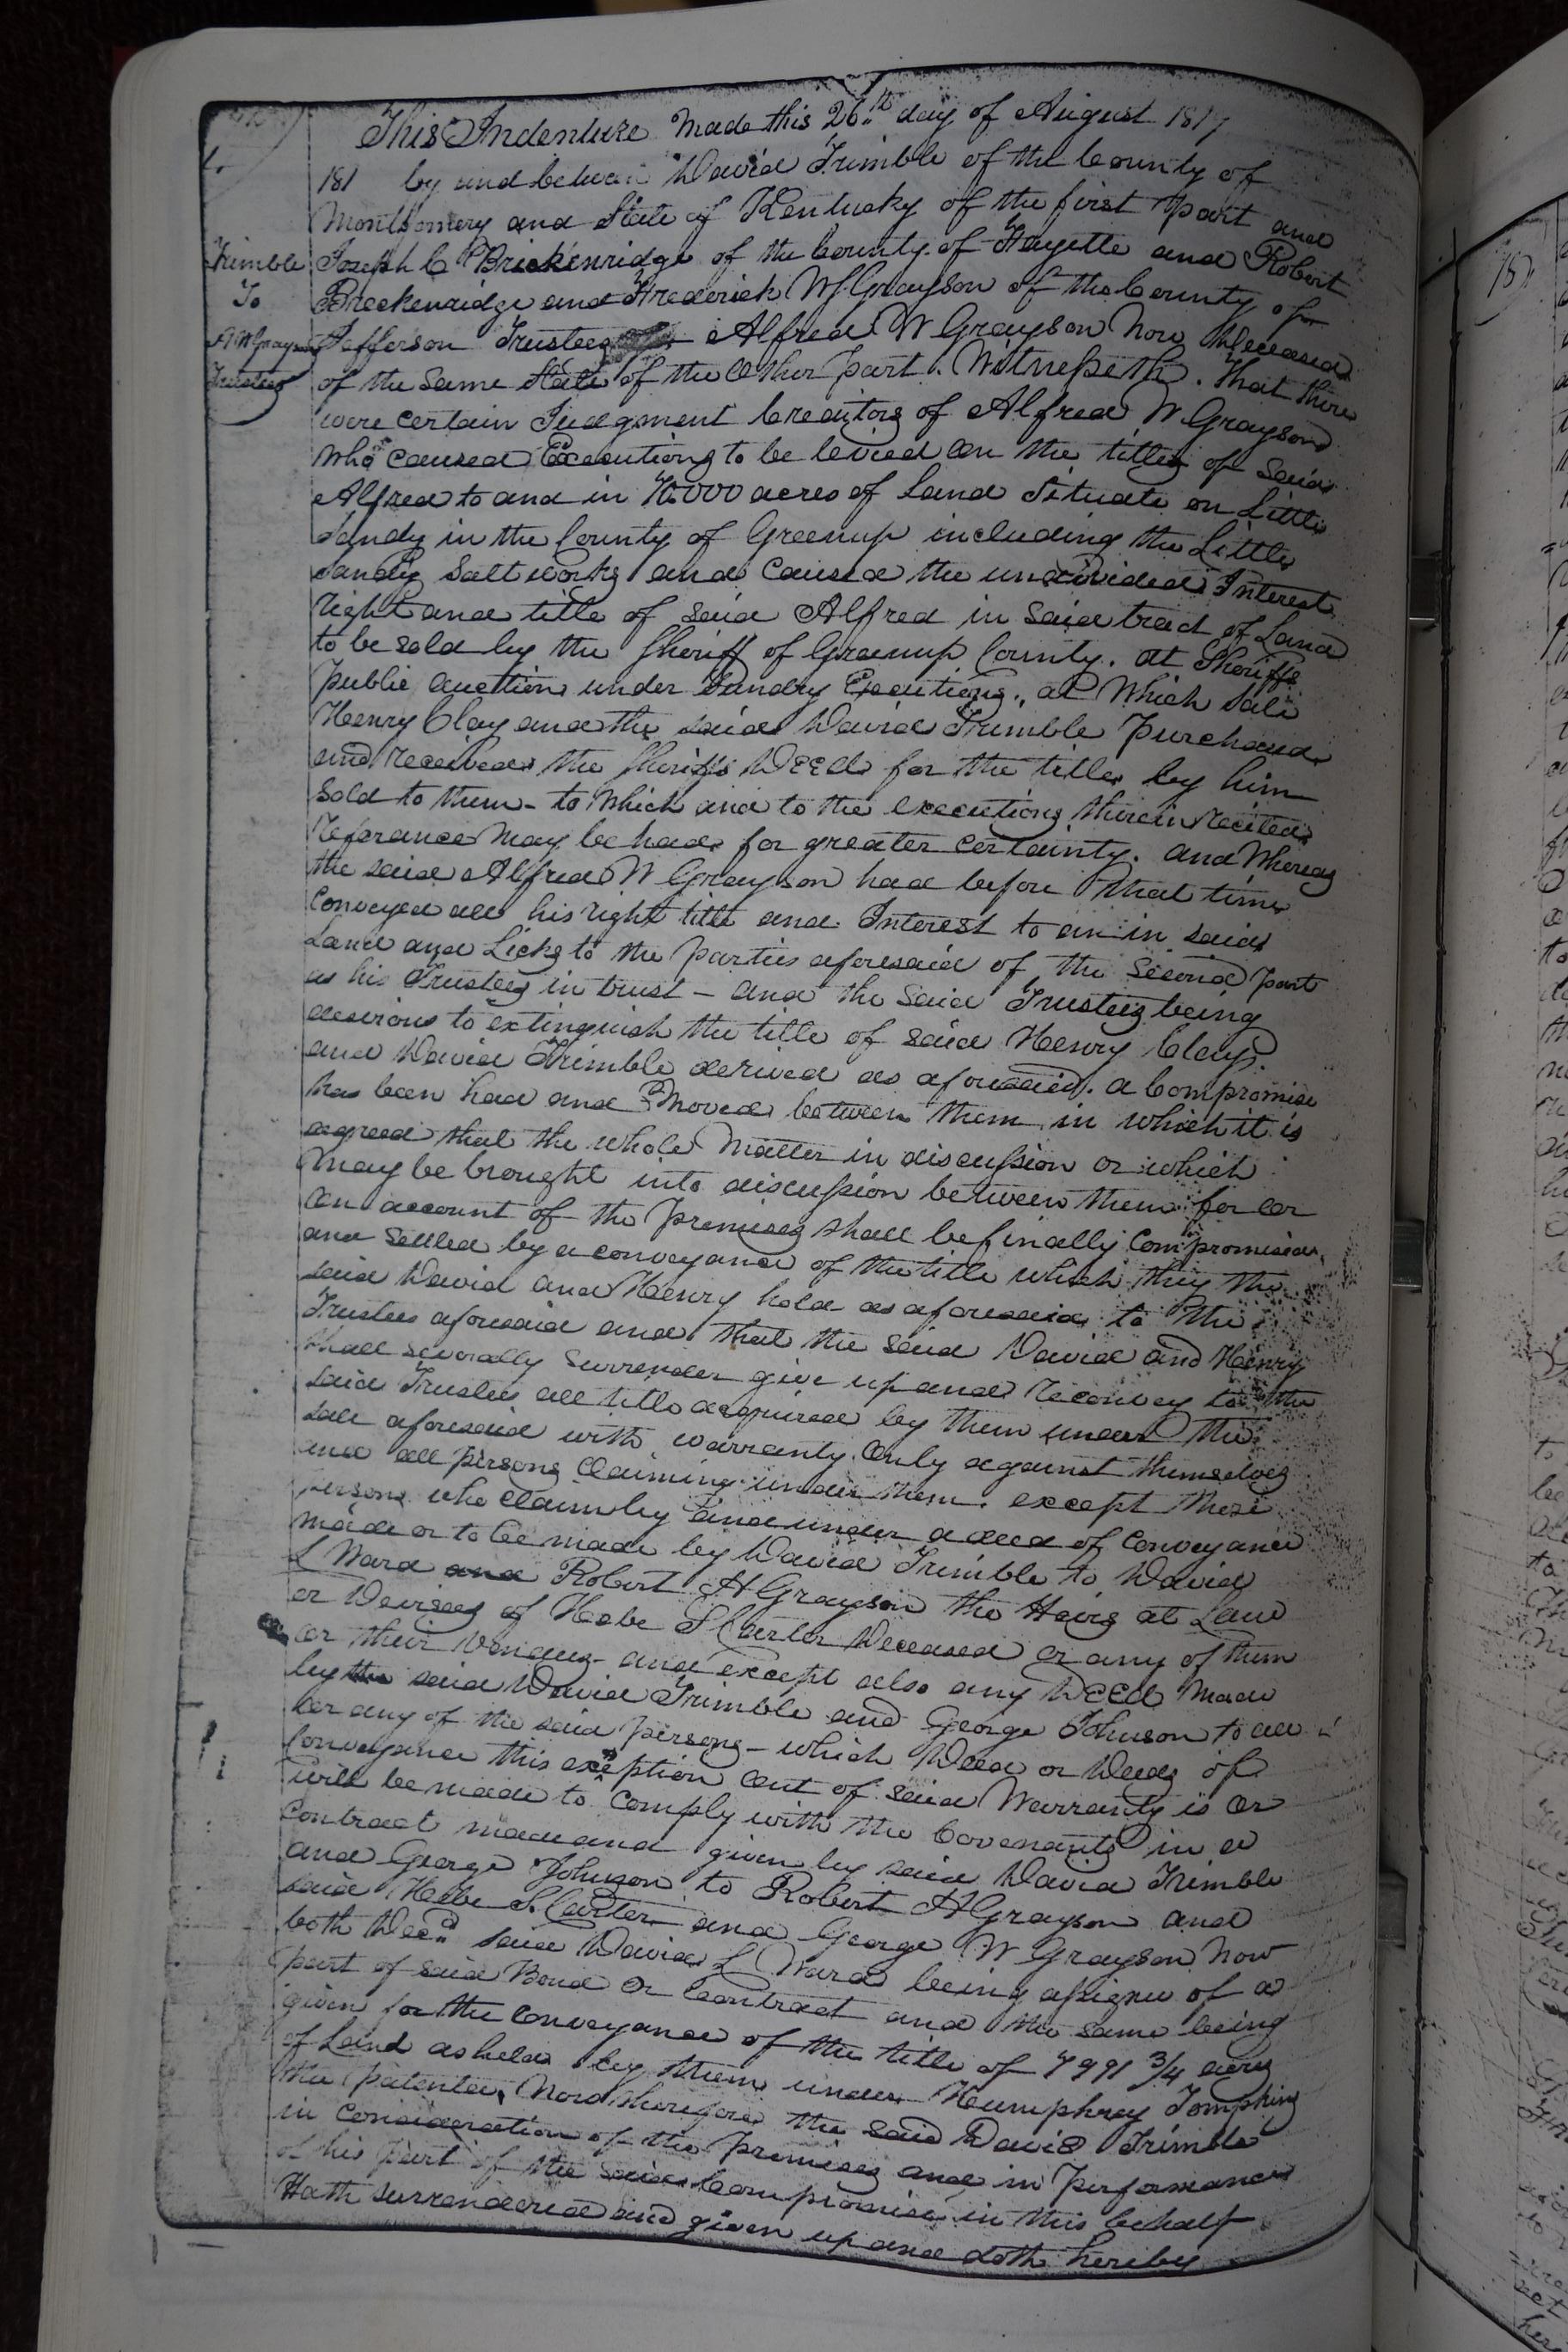 This Indenture Made this 26th day of August 1817
181 by and between David Trimble of the County of
Montgomery and State of Kentucky of the first part and
Trimble
To
A W Grayson
Trustees
Joseph C Brickenridge of the County of Fayette and Robert
Breckenridge and Frederick W S Grayson of the County of
Jefferson Trustees Alfred W Grayson Now Deceased
of the Same State of the Other part. Witnesseth. That there
were certain Judgment Creditors of Alfred W Grayson
who caused Executions to be levied on the titles of Said
Alfred to and in 70000 acres of Land Situate on Little
Sandy in the County of Greenup including the Little
Sandy Salt works and caused the undivided Interest
right and title of said Alfred in said tract of Land
to be sold by the Sheriff of Greenup County. at Sheriffs
public auction under Sundry Executions. at Which Sale
Henry Clay and the said David Trimble Purchased
and received the Sheriffs Deed for the titles by him
Sold to them - to Which and to the executions therein recited
referance May be had for greater certainty. and Whereas
the said Alfred W Grayson had before that time
Conveyed all his right title and Interest to an in said
Land and Licks to the parties aforesaid of the Second part
as his Trustees in trust - and the Said Trustees being
desirous to extinguish the title of said Henry Clay
and David Trimble derived as aforesaid. a Compromise
has been had and moved between them in which it is
agreed that the whole Matter in discussion or which
may be brought into discussion between them for or
on account of the Premises shall be finally Compromised
and settled by a conveyance of the title which they the
said David and Henry hold as aforesaid to the
Trustees aforesaid and that the said David and Henry
shall severally surrender give up and reconvey to the
said Trustees all title acquired by them under the
sale aforesaid with warranty only against themselves
and all persons Claiming under them. except these
persons who claim by and under a deed of Conveyance
made or to be made by David Trimble to David
L Ward and Robert H Grayson the Heirs at Law
or Devisees of Hebe S Carter Deceased or any of them
or their Vendees - and except also any Deed Made
by the said David Trimble and George Johnson to all
or any of the said persons - which Deed or Deeds of
Conveyance this exception out of said Warranty is or
will be made to comply with the Covenants in a
Contract made and given by said David Trimble
and George Johnson to Robert H Grayson and
said Hebe S. Carter and George W Grayson Now
both Decd said David L Ward being assignee of a
part of said Bond or Contract and the same being
given for the Conveyance of the title of 7991 3/4 acres
of Land as held by them under Humphrey Tompkins
the patentee, Now therefore the said David Trimble
in consideration of the Premises and in Performance
of his part of the said Compromise in this behalf
Hath surrendered and given up and doth hereby